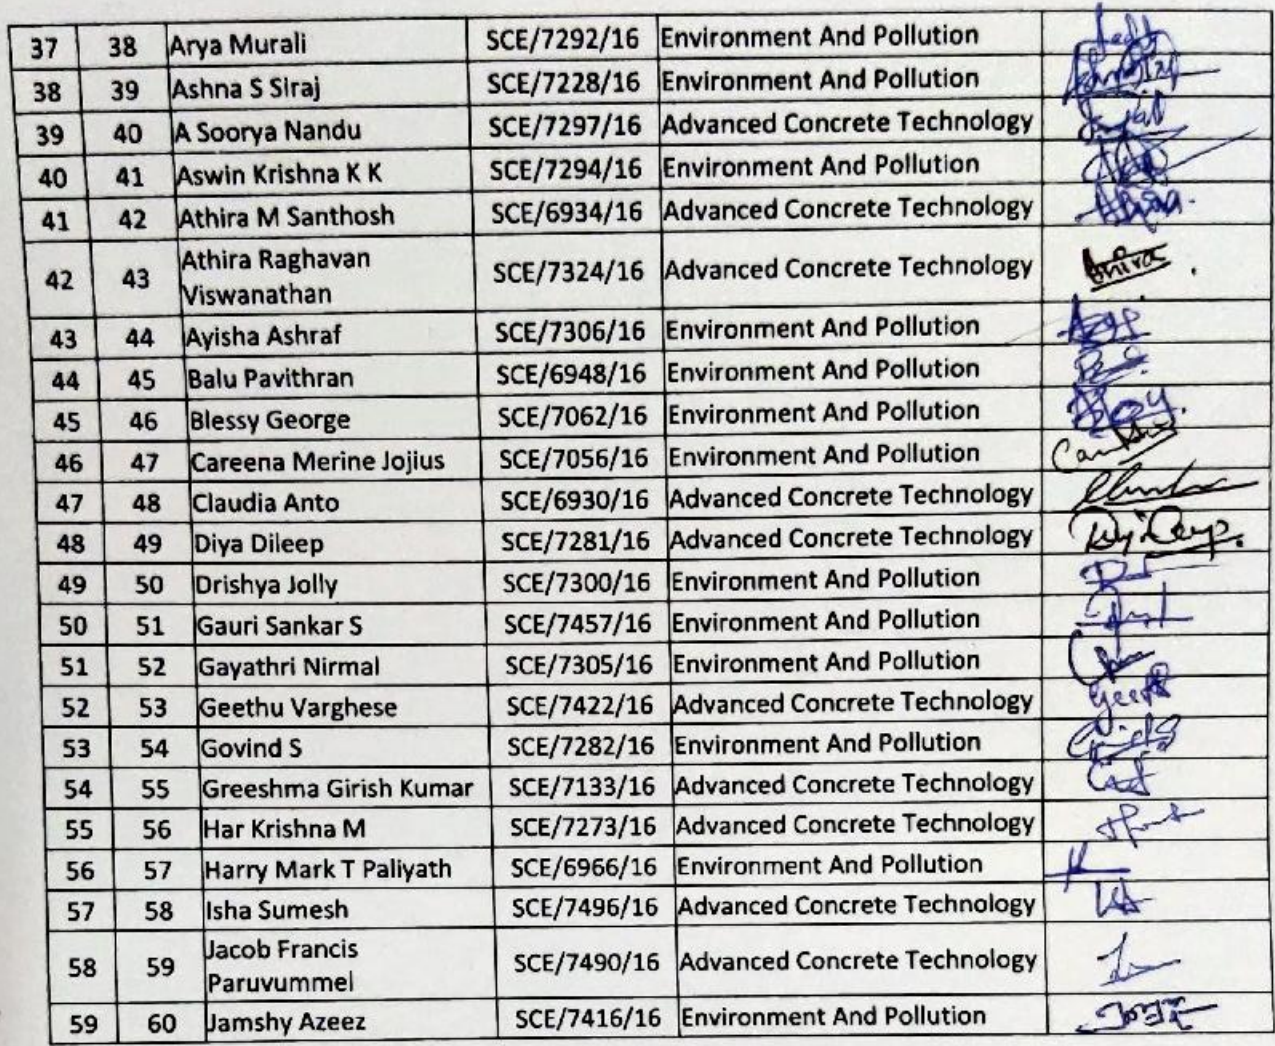 37 38 Arya Murali SCE/7292/16 Environment And Pollution
38 39 Ashna S Siraj SCE/7228/16 Environment And Pollution
39 40 A Soorya Nandu SCE/7297/16 Advanced Concrete Technology
40 41 Aswin Krishna K K SCE/7294/16 Environment And Pollution
41 42 Athira M Santhosh SCE/6934/16 Advanced Concrete Technology
42 43 Athira Raghavan Viswanathan SCE/7324/16 Advanced Concrete Technology
43 44 Ayisha Ashraf SCE/7306/16 Environment And Pollution
44 45 Balu Pavithran SCE/6948/16 Environment And Pollution
45 46 Blessy George SCE/7062/16 Environment And Pollution
46 47 Careena Merine Jojius SCE/7056/16 Environment And Pollution
47 48 Claudia Anto SCE/6930/16 Advanced Concrete Technology
48 49 Diya Dileep SCE/7281/16 Advanced Concrete Technology
49 50 Drishya Jolly SCE/7300/16 Environment And Pollution
50 51 Gauri Sankar S SCE/7457/16 Environment And Pollution
51 52 Gayathri Nirmal SCE/7305/16 Environment And Pollution
52 53 Geethu Varghese SCE/7422/16 Advanced Concrete Technology
53 54 Govind S SCE/7282/16 Environment And Pollution
54 55 Greeshma Girish Kumar SCE/7133/16 Advanced Concrete Technology
55 56 Har Krishna M SCE/7273/16 Advanced Concrete Technology
56 57 Harry Mark T Paliyath SCE/6966/16 Environment And Pollution
57 58 Isha Sumesh SCE/7496/16 Advanced Concrete Technology
58 59 Jacob Francis Paruvummel SCE/7490/16 Advanced Concrete Technology
59 60 Jamshy Azeez SCE/7416/16 Environment And Pollution